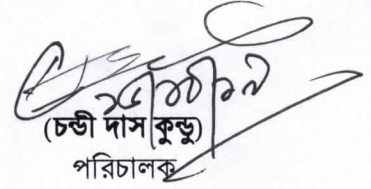 (চন্ডী দাস কুন্ডু)
পরিচালক